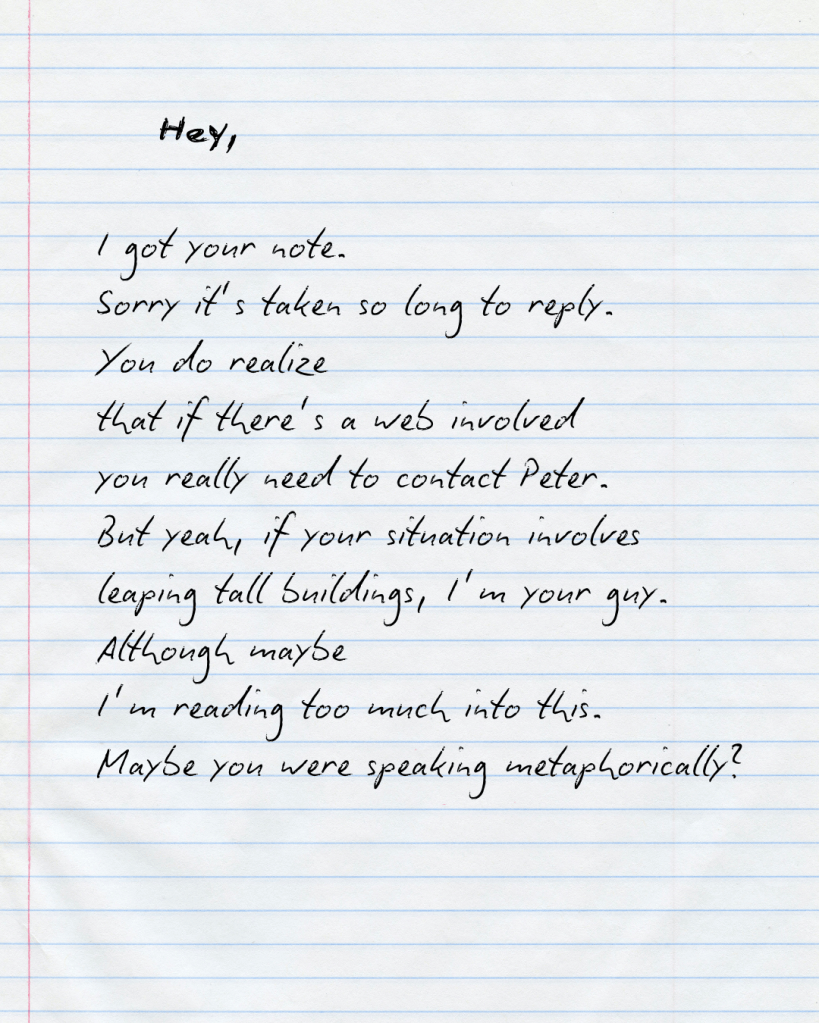 Hey,
I got your note.
Sorry it's taken so long to reply.
You do realize
that if there's a web involved
you really need to contact Peter.
But yeah, if your situation involves
leaping tall buildings, I'm your guy.
Although maybe
I'm reading too much into this.
Maybe you were speaking metaphorically?